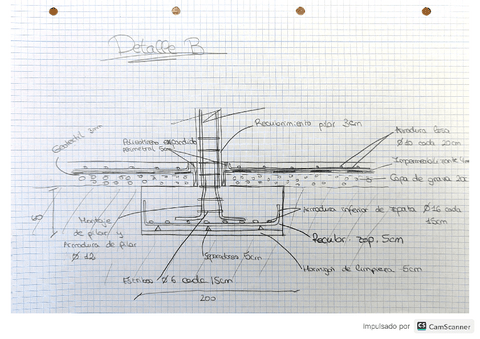 Detalle B
Recubrimiento pilar 3cm
Armadura losa
Ø 10 cada 20cm
Poliestireno expandido
perimetral 5cm
Geotextil
Impermeabilizante
Capa de grava
60
Montaje
de pilar y
Armadura de pilar
Ø 12
Armadura inferior de zapata Ø 16 cada
15cm
Recubr. zap. 5cm
Separadores 5cm
Hormigón de limpieza
Estribos Ø 6 cada 15cm
200
Impulsado por CS CamScanner